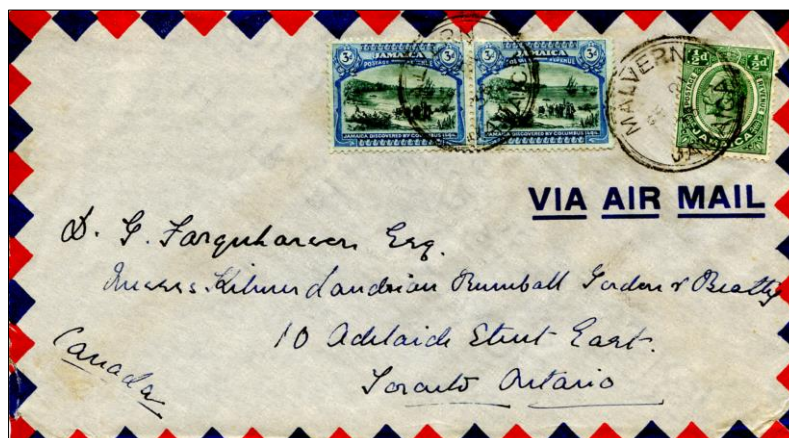 3d JAMAICA 3d
POSTAGE & REVENUE
JAMAICA DISCOVERED BY COLUMBUS 1494
3d JAMAICA 3d
POSTAGE & REVENUE
JAMAICA DISCOVERED BY COLUMBUS 1494
MALVERN
JAMAICA
½d ½d
POSTAGE & REVENUE
JAMAICA
MALVERN
JAMAICA
VIA AIR MAIL
D. G. Farquharson Esq.
Messrs Kilmer Rumball Gordon & Beatty
10 Adelaide Street East.
Toronto Ontario
Canada